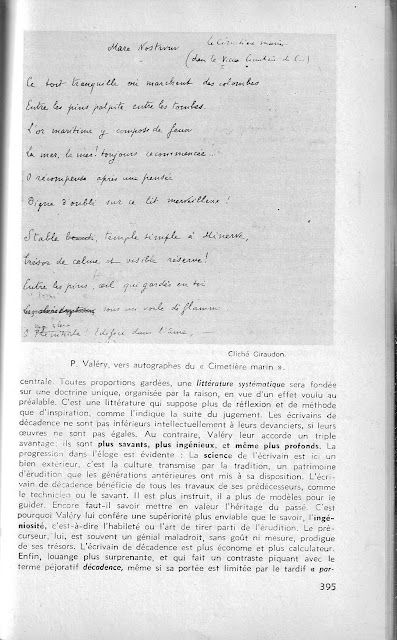 Mare Nostrum le Cimetière marin
(dans le Vieux Cimetière de C...)
Ce toit tranquille où marchent des colombes
Entre les pins palpite entre les tombes.
L'or maritime y compose de feux
La mer, la mer! toujours recommencée...
O récompense après une pensée
Digne d'oubli sur ce lit merveilleux!
Stable temple simple à Minerve,
de calme et visible réserve!
Entre les pins, œil qui gardes en toi
sous un voile de flamme
O Édifice dans l'âme,
Cliché Giraudon.
P. Valéry, vers autographes du « Cimetière marin ».
centrale. Toutes proportions gardées, une littérature systématique sera fondée
sur une doctrine unique, organisée par la raison, en vue d'un effet voulu au
préalable. C'est une littérature qui suppose plus de réflexion et de méthode
que d'inspiration, comme l'indique la suite du jugement. Les écrivains de
décadence ne sont pas inférieurs intellectuellement à leurs devanciers, si leurs
œuvres ne sont pas égales. Au contraire, Valéry leur accorde un triple
avantage: ils sont plus savants, plus ingénieux, et même plus profonds. La
progression dans l'éloge est évidente : La science de l'écrivain est ici un
bien extérieur, c'est la culture transmise par la tradition, un patrimoine
d'érudition que les générations antérieures ont mis à sa disposition. L'écri-
vain de décadence bénéficie de tous les travaux de ses prédécesseurs, comme
le technicien ou le savant. Il est plus instruit, il a plus de modèles pour le
guider. Encore faut-il savoir mettre en valeur l'héritage du passé. C'est
pourquoi Valéry lui confère une supériorité plus enviable que le savoir, l'ingé-
niosité, c'est-à-dire l'habileté ou l'art de tirer parti de l'érudition. Le pré-
curseur, lui, est souvent un génial maladroit, sans goût ni mesure, prodigue
de ses trésors. L'écrivain de décadence est plus économe et plus calculateur.
Enfin, louange plus surprenante, et qui fait un contraste piquant avec le
terme péjoratif décadence, même si sa portée est limitée par le tardif « par-
395